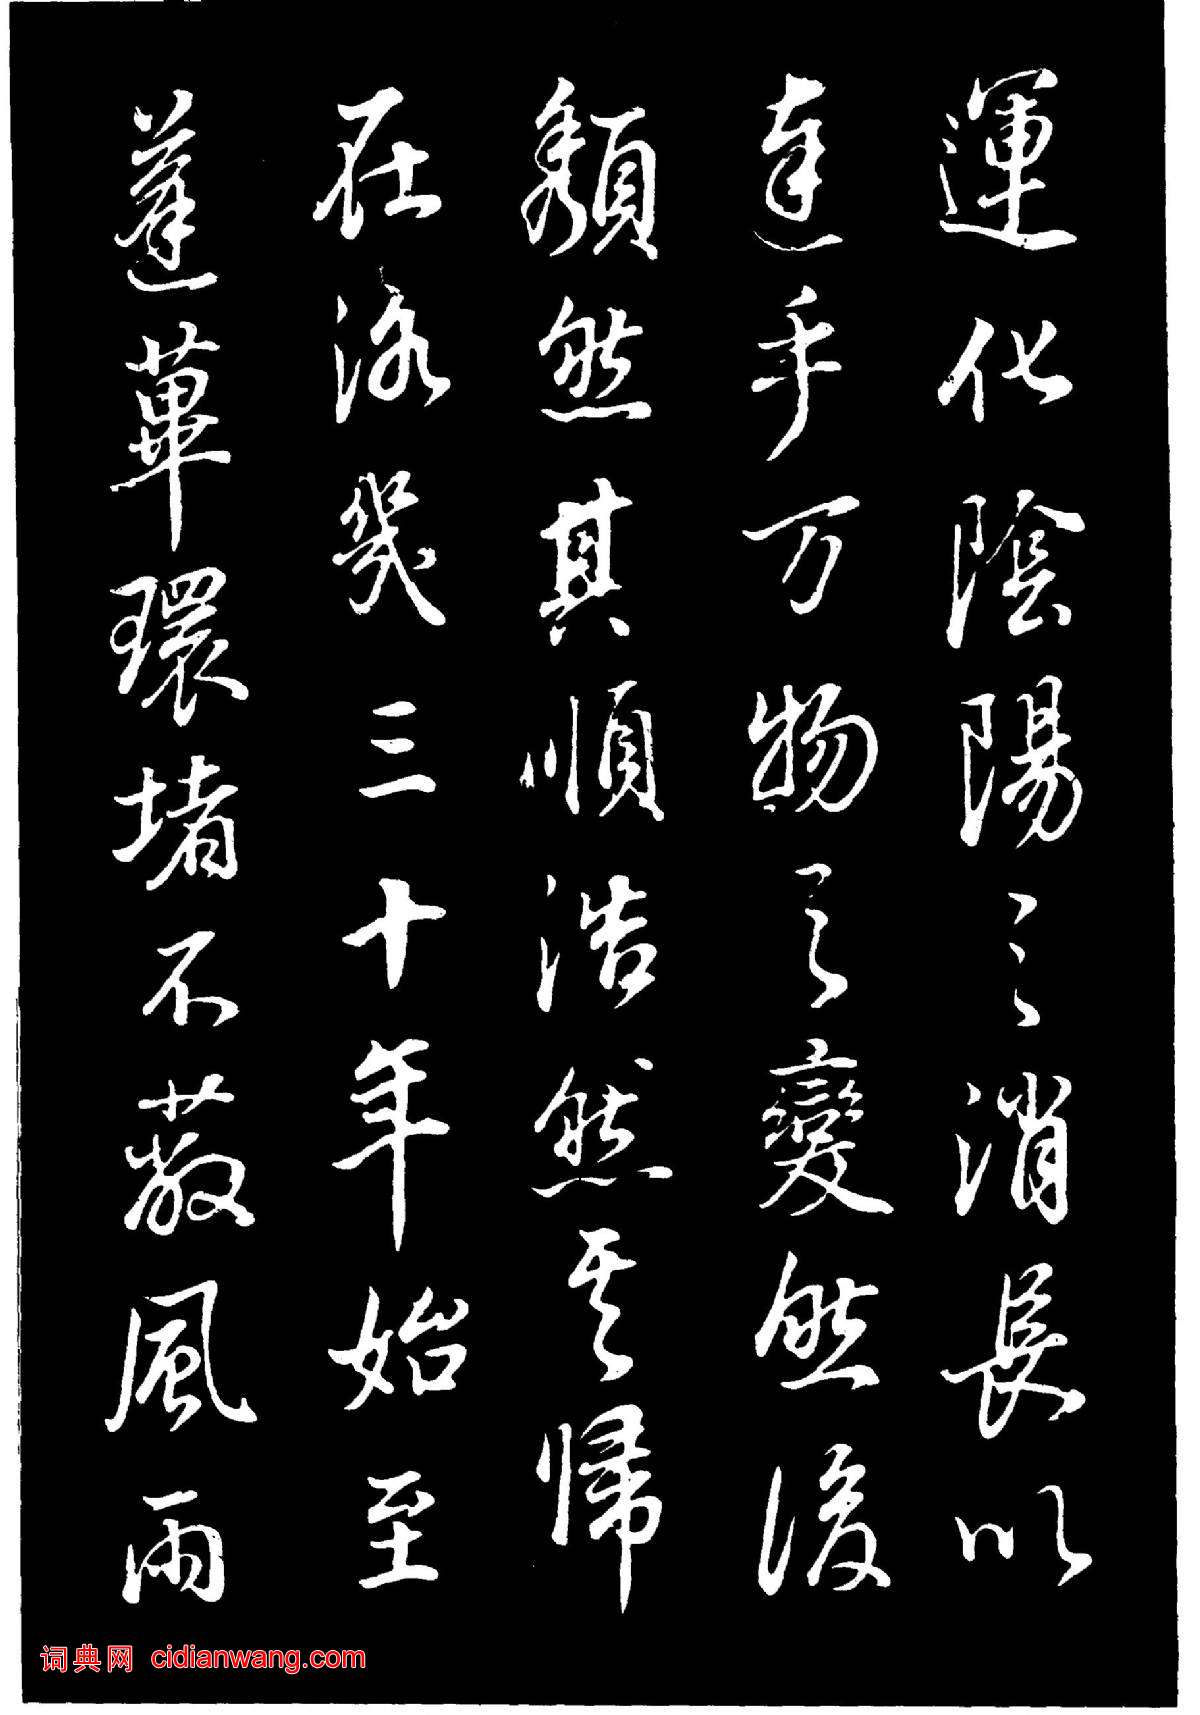 運化陰陽之消長以
達乎万物之變然後
頽然其順浩然其歸
在洛幾三十年始至
蓬蓽環堵不蔽風雨
词典网 cidianwang.com